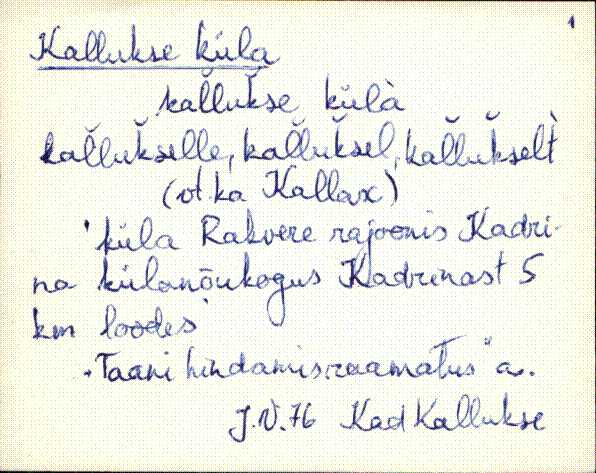 1
Kallukse küla
kal̆lŭkse külà
kal̆lŭkselle, kal̆lŭksel, kal̆lŭkselt̀
(vt. ka Kallax)
'küla Rakvere rajoonis Kadri-
na külanõukogus Kadrinast 5
km loodes'
"Taani hindamisraamatus" a.
J.V. 76 Kad Kallukse